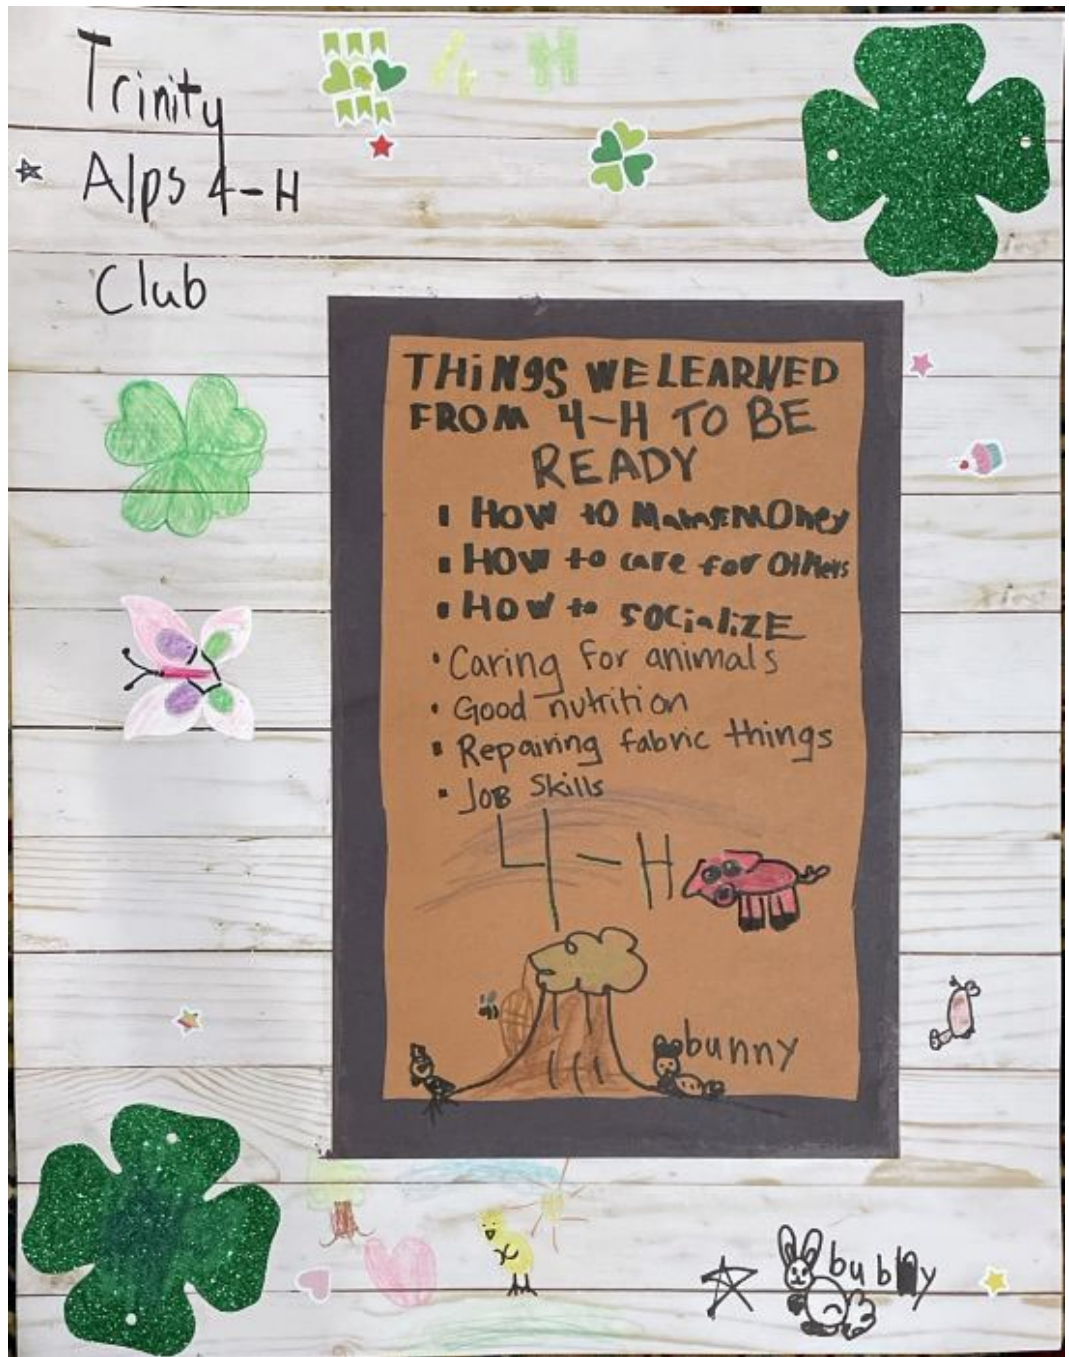 Trinity
Alps 4-H
Club
4-H
THiNgS WE LEARNED
FROM 4-H TO BE
READY
HOW to ManageMOney
HOW to care for Others
HOW to SOCialiZE
Caring for animals
Good nutrition
Repairing fabric things
JOB Skills
4-H
bunny